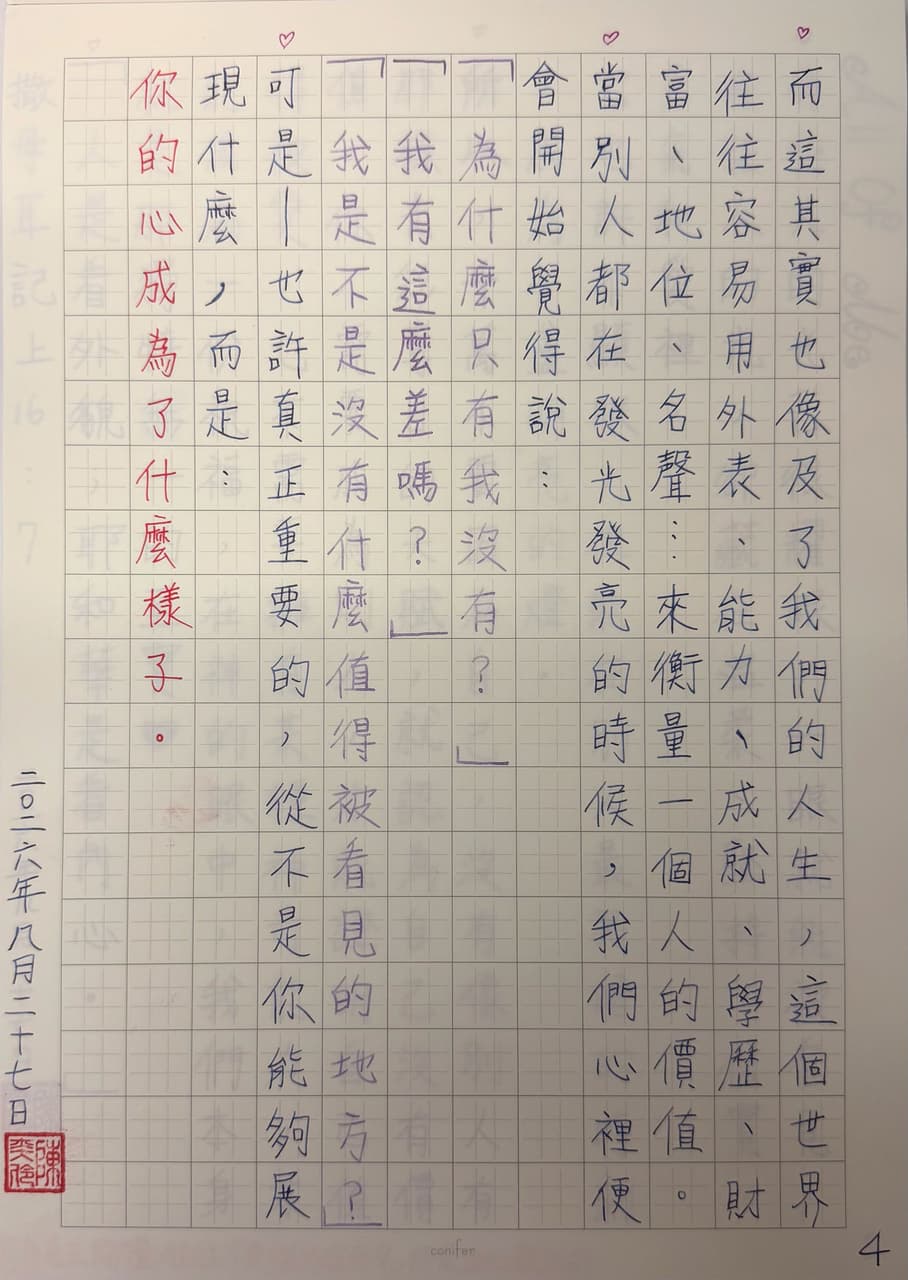 而這其實也像及了我們的人生，這個世界
往往容易用外表、能力、成就、學歷、財
富、地位、名聲…來衡量一個人的價值。
當別人都在發光發亮的時候，我們心裡便
會開始覺得說：
「為什麼只有我沒有？」
「我有這麼差嗎？」
「我是不是沒有什麼值得被看見的地方？」
可是—也許真正重要的，從不是你能夠展
現什麼，而是：
你的心成為了什麼樣子。
二〇二六年八月二十七日
4
conifer